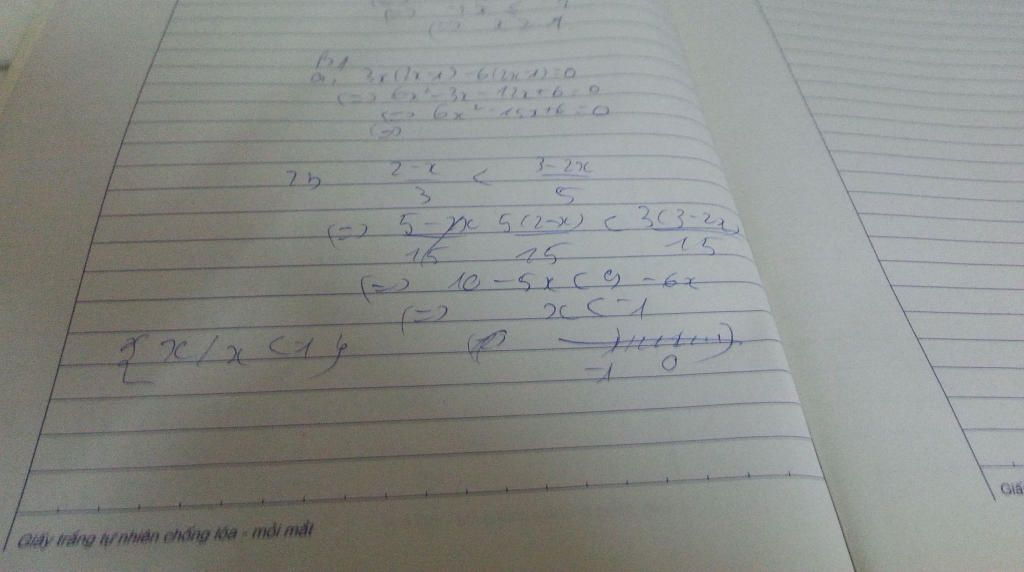 B1
a, 3x(2x-1) - 6(2x-1)=0
(=) 6x² - 3x - 12x + 6 = 0
(=) 6x² - 15x + 6 = 0
(=)
2b 2-x/3 < 3-2x/5
(=) 5(2-x)/15 < 3(3-2x)/15
(=) 10 - 5x < 9 - 6x
(=) x < -1
{x/x < -1}
-1 0
Giấy trắng tự nhiên chống lóa - mỏi mắt